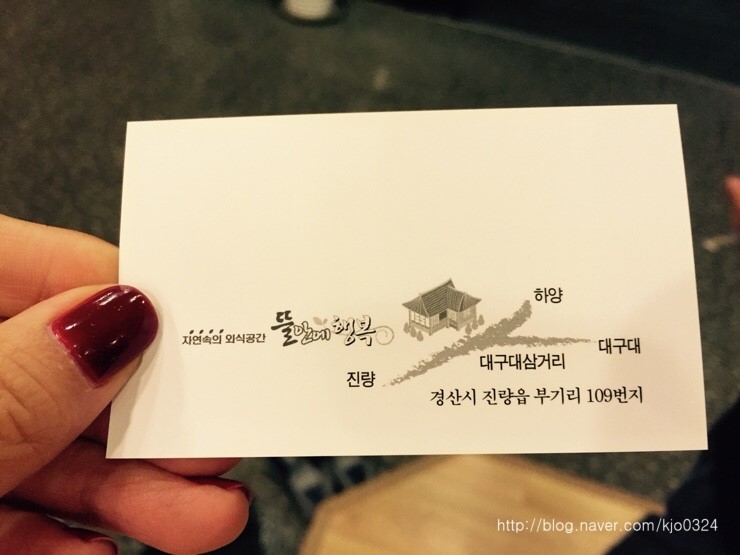 하양
자연속의 외식공간 뜰안에 행복
대구대
대구대삼거리
진량
경산시 진량읍 부기리 109번지
http://blog.naver.com/kjo0324